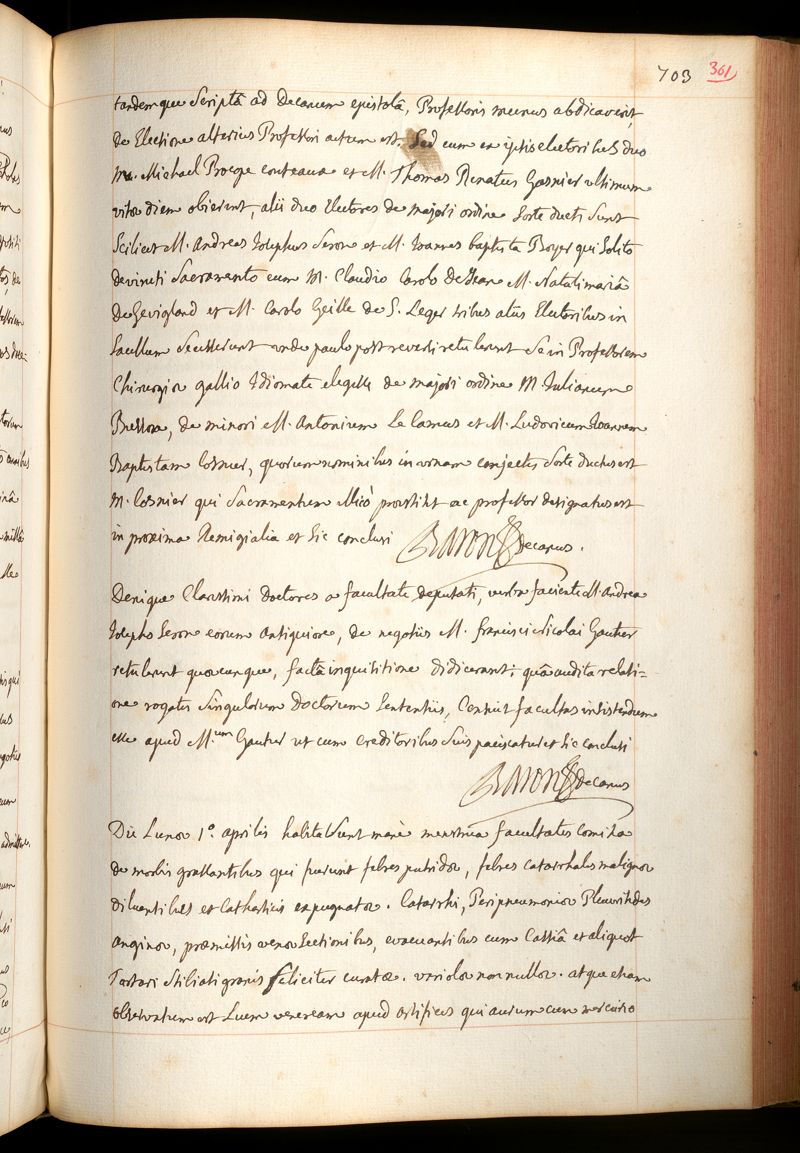 703 361
tandemque scriptâ ad Decanum epistolâ, Professoris munus abdicaverit,
de Electione alterius Professori actum est. Sed cum ex ipsis electoribus duo
M. Michael Procope couteaux et M. Thomas Renatus Gasnier ultimum
vitæ diem obierint, alii duo Electores de majori ordine sorte ducti sunt
scilicet M. Andreas Josephus Seron et M. Joannes baptista Boyer qui solito
devincti sacramento cum M. Claudio Carolo De Jean M. Natali mariâ
De Gevigland et M. Carolo Geille de S. Leger tribus aliis Electoribus in
sacellum secesserunt unde paulo post reversi retulerunt se in Professorem
Chirurgiæ gallico Idiomate elegisse de majori ordine M. Julianum
Bussom, de minori M. Antonium Le Camus et M. Ludovicum Joannem
Baptistam Cosnier, quorum nominibus in urnam conjectis sorte ductus est
M. Cosnier qui sacramentum illicò præstitit ac professor designatus est
in proxima Remigialia et sic conclusi Baron decanus.
Denique Clarissimi doctores a facultate deputati, verba faciente M. Andrea
Josepho Seron eorum antiquiore, de negotiis M. francisci Nicolai Gautier
retulerunt quæcunque, factâ inquisitione didicerant; quâ audita relati=
one rogatis singulorum doctorum sententiis, Censuit facultas insistendum
esse apud M.um Gautier ut cum creditoribus suis paciscatur et sic conclusi
Baron decanus
Die Lunæ 1.° aprilis habita sunt manè menstrua facultatis comitia
de morbis grassantibus qui fuerunt febres putridæ, febres catarrhales malignæ
diluentibus et Catharticis expugnatæ. Catarrhi, Peripneumoniæ Pleuritides
anginæ, præmissis venæ sectionibus, evacuantibus cum Cassiâ et aliquot
Tartari stibiati granis feliciter curatæ. variolæ non nullæ. atque etiam
observatum est Luem veneream apud artifices qui aurum cum mercurio